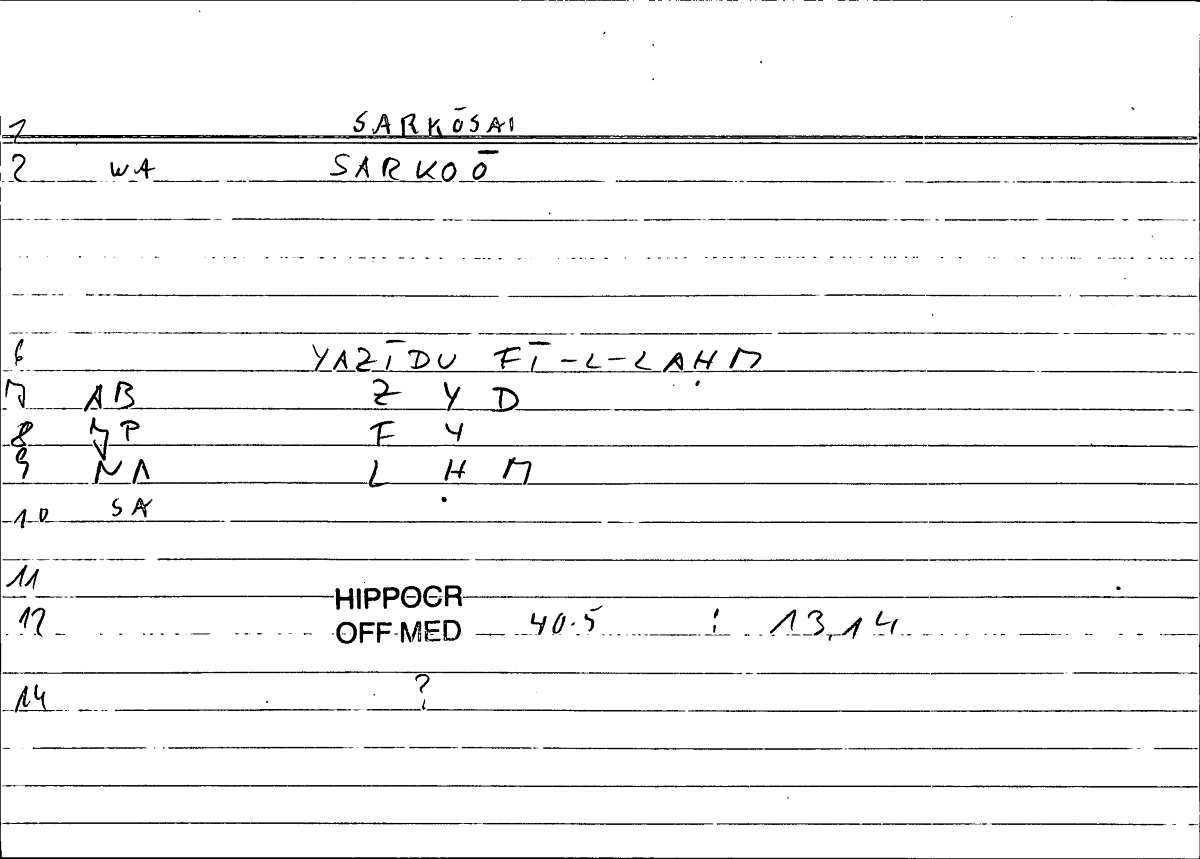 1 SARKŌSAI
2 WA SARKOŌ
6 YAZĪDU FĪ-L-LAḤM
7 AB Z Y D
8 P F Y
9 NA L Ḥ M
10 SA
11
HIPPOCR
12 OFF MED 40.5 : 13,14
14 ?